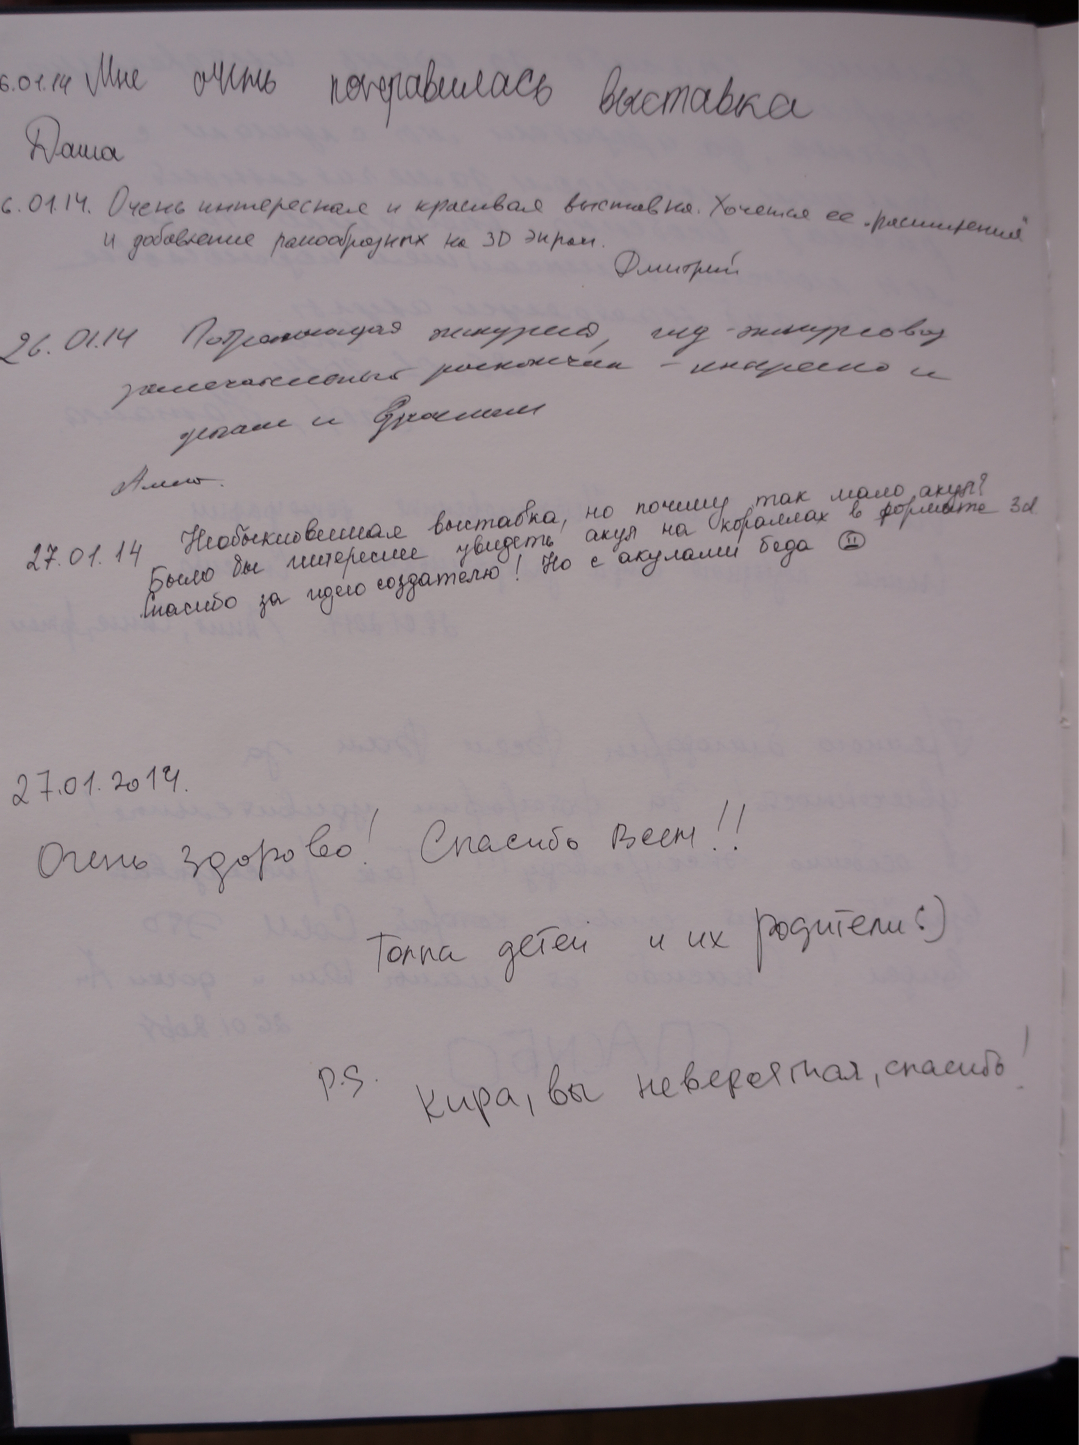 6.01.14 Мне очень понравилась выставка
Даша
6.01.14. Очень интересная и красивая выставка. Хочется ее "расширения"
и добавление ракообразных на 3D экран.
Дмитрий
26.01.14 Потрясающая экскурсия, гид-экскурсовод
замечательный рассказчик - интересно и
детям и взрослым
27.01.14 Необыкновенная выставка, но почему так мало акул?
Было бы интереснее увидеть акул на кораллах в формате 3d
Спасибо за идею создателю! Но с акулами беда
27.01.2014.
Очень здорово! Спасибо Всем!!
Толпа детей и их родители :)
P.S. Кира, вы невероятная, спасибо!